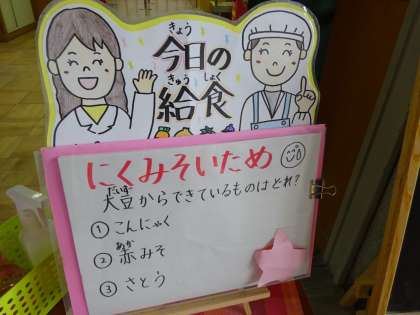 きょう
今日の
きゅうしょく
給食
にくみそいため
だいず
大豆からできているものはどれ?
① こんにゃく
あか
② 赤みそ
③ さとう